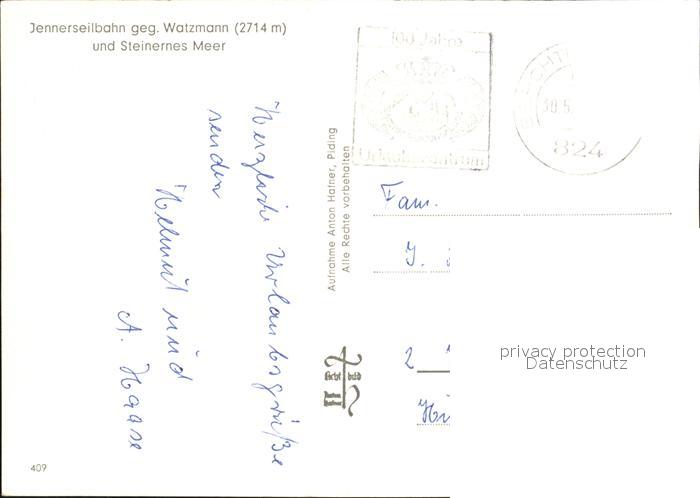 Jennerseilbahn geg. Watzmann (2714 m)
und Steinernes Meer
Herzliche Urlaubsgrüße
senden
Helmut und
A. Haase
Aufnahme Anton Hafner, Piding
Alle Rechte vorbehalten
100 Jahre
Urlaubszentrum
30.5.
824
Fam.
J.
2
Hi
privacy protection
Datenschutz
409